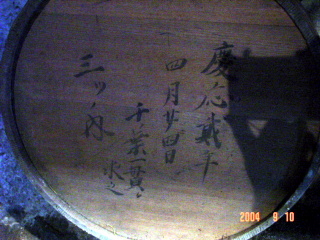 慶応貳年
四月廿四日
千葉一貫
三ツノ内
2004 9 10